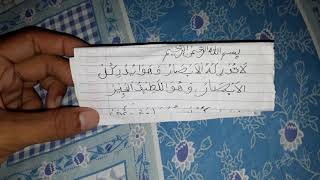 بسم الله الرحمن الرحيم
لا تدركه الابصار وهو يدرك كل
الابصار وهو اللطيف الخبير